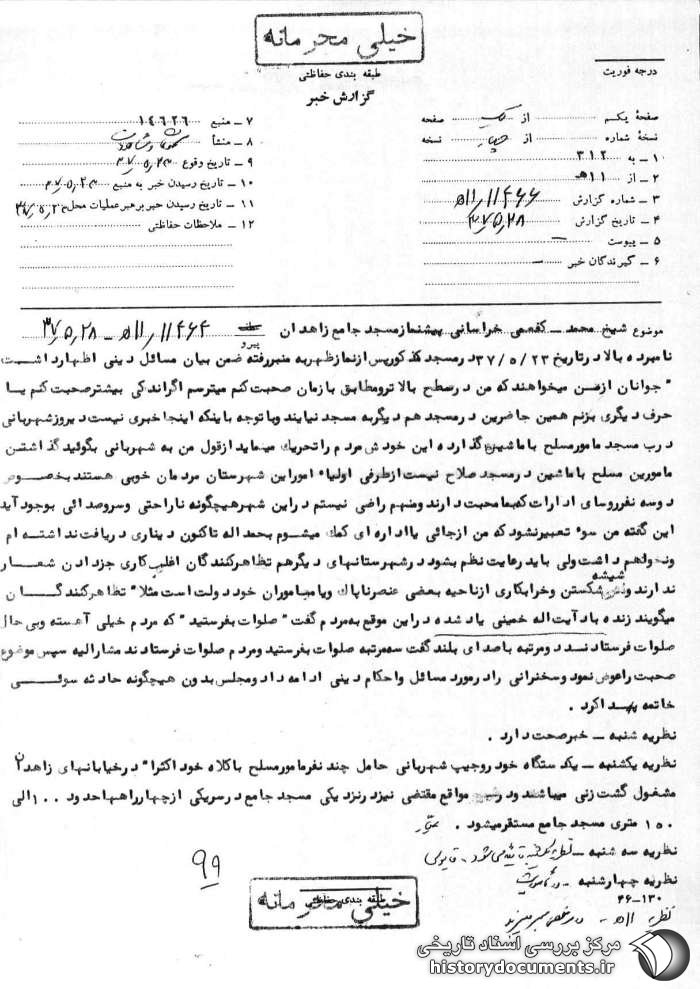 خیلی محرمانه
طبقه بندی حفاظتی
گزارش خبر
درجه فوریت
صفحهٔ یکم از یک صفحه
نسخهٔ شماره از چهار نسخه
۱ ـ به ۳۱۲
۲ ـ از ۱۱ هـ
۳ ـ شماره گزارش ۱۱۴۶۶/۱۱هـ
۴ ـ تاریخ گزارش ۳۷/۵/۲۸
۵ ـ پیوست ـ
۶ ـ گیرندگان خبر ـ
۷ ـ منبع ۱۴۶۲۶
۸ ـ منشأ
۹ ـ تاریخ وقوع ۳۷/۵/۲۳
۱۰ ـ تاریخ رسیدن خبر به منبع ۳۷/۵/۲۳
۱۱ ـ تاریخ رسیدن خبر برهبر عملیات محل
۱۲ ـ ملاحظات حفاظتی
موضوع شیخ محمد ـ کفعمی خراسانی پیشنماز مسجد جامع زاهدان پیرو ۱۱۴۶۴/۱۱هـ ـ ۳۷/۵/۲۸
نامبرده بالا در تاریخ ۳۷/۵/۲۳ در مسجد مذکور پس از نماز ظهر به منبر رفته ضمن بیان مسائل دینی اظهار داشت
"جوانان از من میخواهند که من در سطح بالا تر و مطابق با زمان صحبت کنم میترسم اگر اندکی بیشتر صحبت کنم یا
حرف دیگری بزنم همین حاضرین در مسجد هم دیگر به مسجد نیایند و با توجه با ینکه اینجا خبری نیست دیروز شهربانی
درب مسجد مامور مسلح با ماشین گذارده این خودش مردم را تحریک مینماید از قول من به شهربانی بگوئید گذاشتن
مامورین مسلح با ماشین در مسجد صلاح نیست از طرفی اولیاء امور این شهرستان مردمان خوبی هستند بخصوص
دو سه نفر روسای ادارات که بما محبت دارند و منهم راضی نیستم در این شهر هیچگونه ناراحتی و سر و صدائی بوجود آید
این گفته من سوء تعبیر نشود که من از جائی یا اداره ای کمک میشوم بحمداله تاکنون دیناری دریافت نداشته ام
و نخواهم داشت ولی باید رعایت نظم بشود در شهرستانهای دیگر هم تظاهر کنندگان اغلب کاری جز دادن شعار
ندارند و شیشه شکستن و خرابکاری از ناحیه بعضی عنصر ناپاک و یا ماموران خود دولت است مثلا" تظاهر کنندگان
میگویند زنده باد آیت اله خمینی یاد شده در این موقع به مردم گفت "صلوات بفرستید" که مردم خیلی آهسته و بی حال
صلوات فرستادند دو مرتبه با صدای بلند گفت سه مرتبه صلوات بفرستید و مردم صلوات فرستادند مشارالیه سپس موضوع
صحبت را عوض نمود و سخنرانی را در مورد مسائل و احکام دینی ادامه داد و مجلس بدون هیچگونه حادثه سوئی
خاتمه پیدا کرد .
نظریه شنبه ـ خبر صحت دارد .
نظریه یکشنبه ـ یکدستگاه خودرو جیپ شهربانی حامل چند نفر مامور مسلح با کلاه خود اکثرا" در خیابانهای زاهدان
مشغول گشت زنی میباشند و در مواقع مقتضی نیز در نزدیکی مسجد جامع در سر یکی از چهار راهها حدود ۱۰۰ الی
۱۵۰ متری مسجد جامع مستقر میشود .
نظریه سه شنبه ـ نظریه یکشنبه تأیید می شود ـ
نظریه چهارشنبه ـ
۴۶-۱۳۰
نظریه ۱۱هـ ـ
۹۹
طبقه بندی حفاظتی
خیلی محرمانه
مرکز بررسی اسناد تاریخی
historydocuments.ir